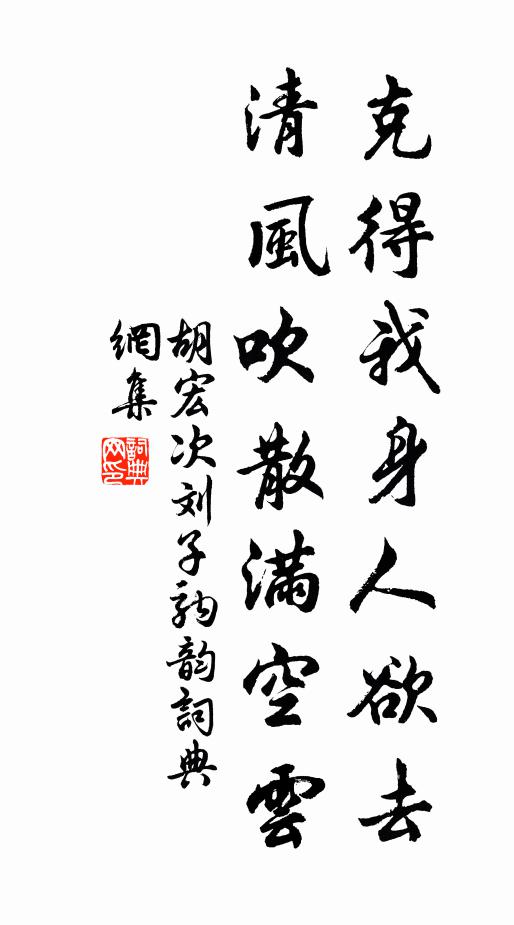 克得我身人欲去
清風吹散滿空雲
胡宏次刘子駒韵詞典
網集
詞典网印